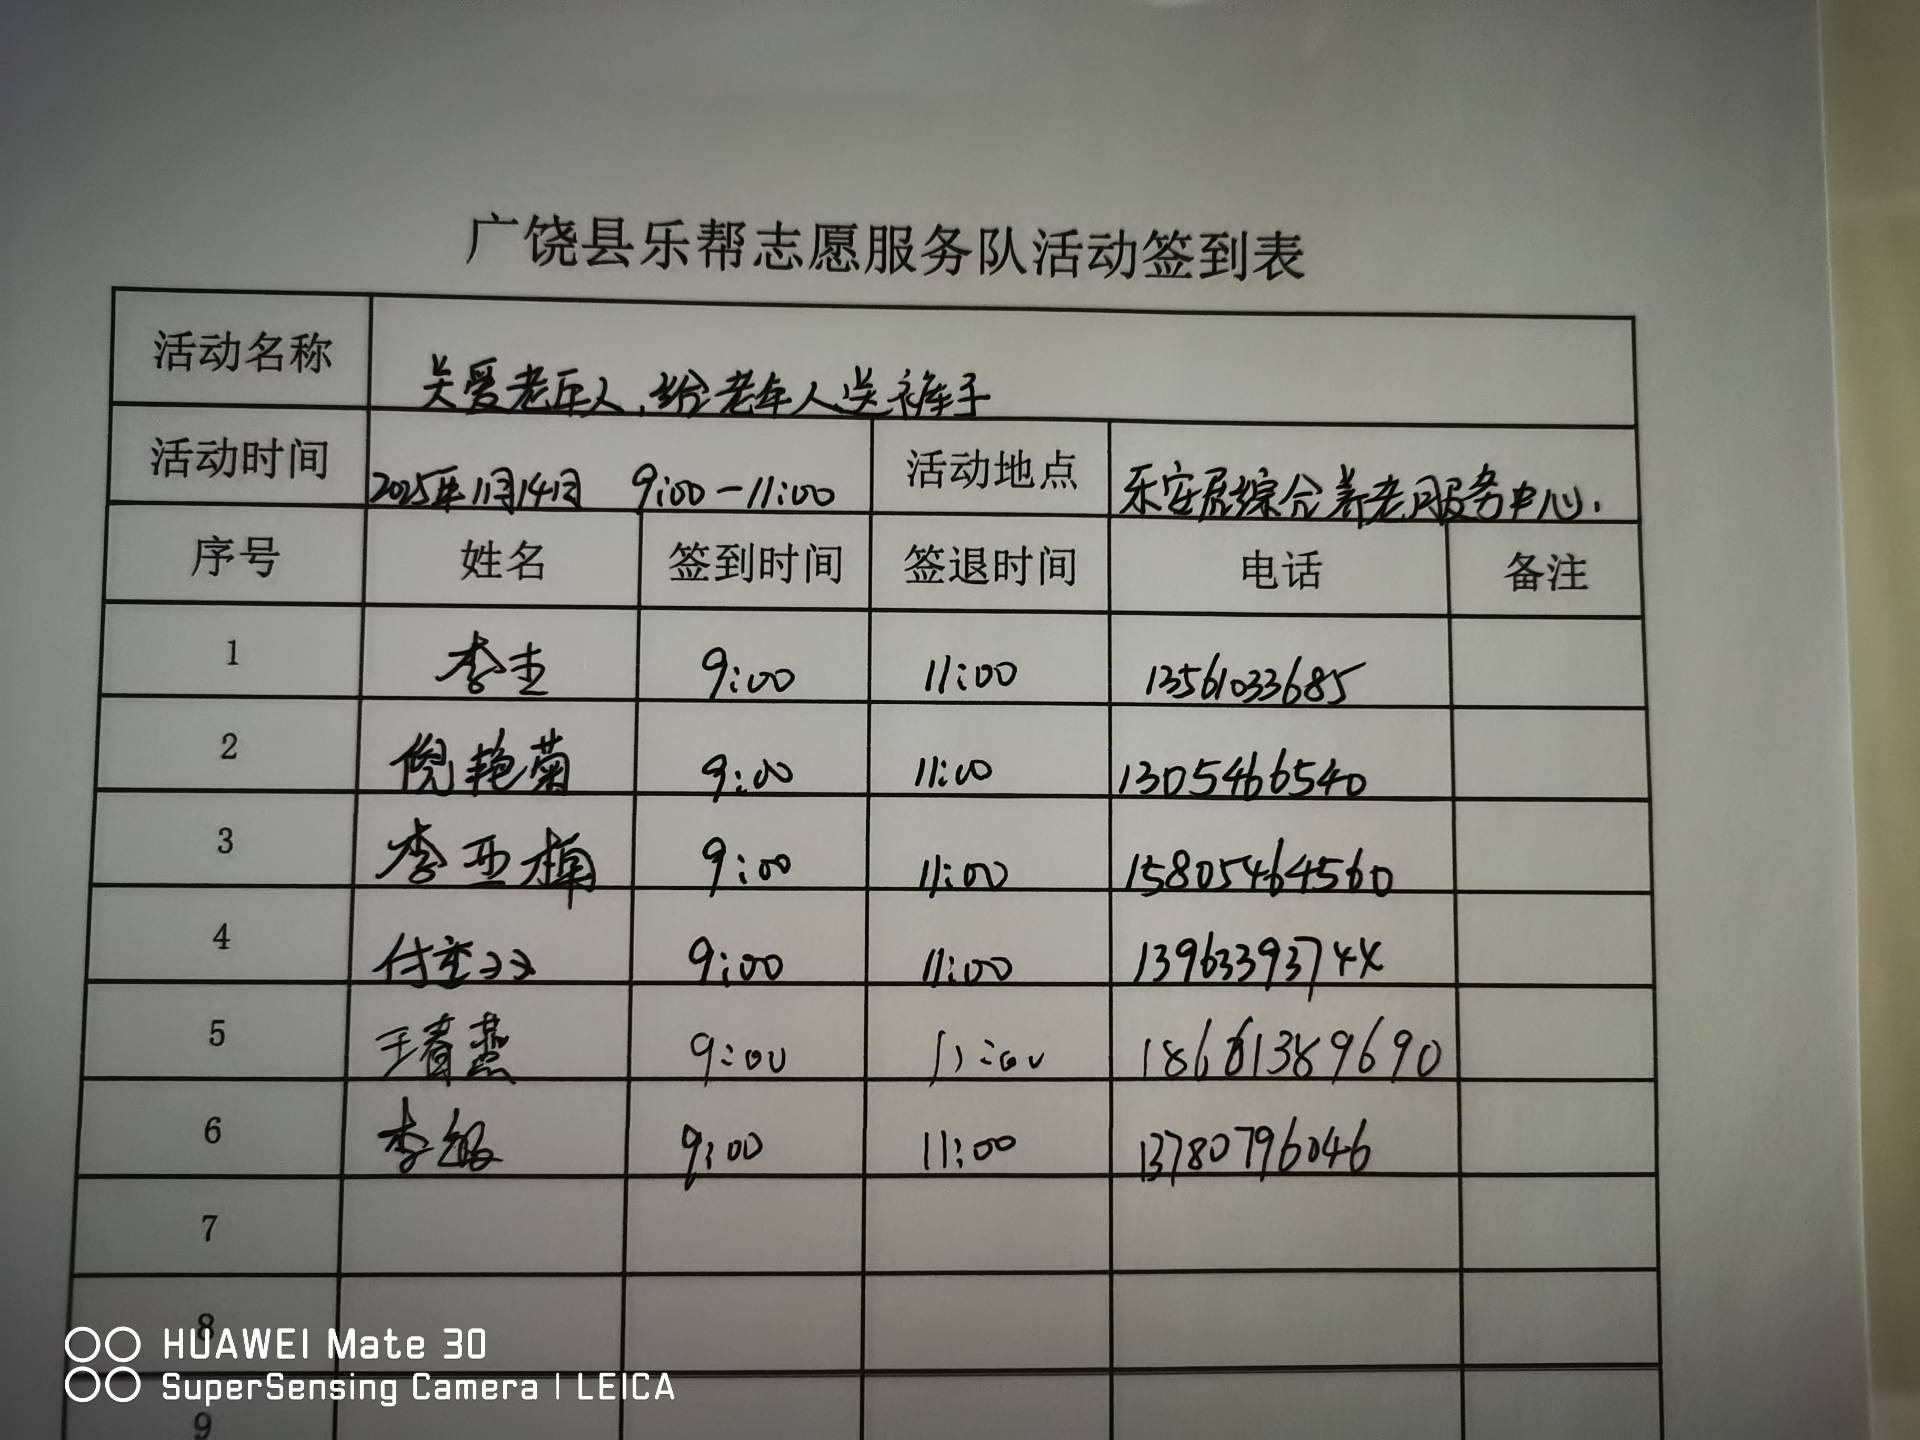 广饶县乐帮志愿服务队活动签到表
活动名称 关爱老年人,给老年人送裤子
活动时间 2025年11月14日 9:00-11:00 活动地点 乐安居综合养老服务中心.
序号 姓名 签到时间 签退时间 电话 备注
1 李 9:00 11:00 13561033685
2 倪艳菊 9:00 11:00 1305466540
3 李亚楠 9:00 11:00 15805464560
4 付 9:00 11:00 13963393744
5 王春燕 9:00 11:00 18661389690
6 李敏 9:00 11:00 13780796046
7
8
9
HUAWEI Mate 30
SuperSensing Camera | LEICA